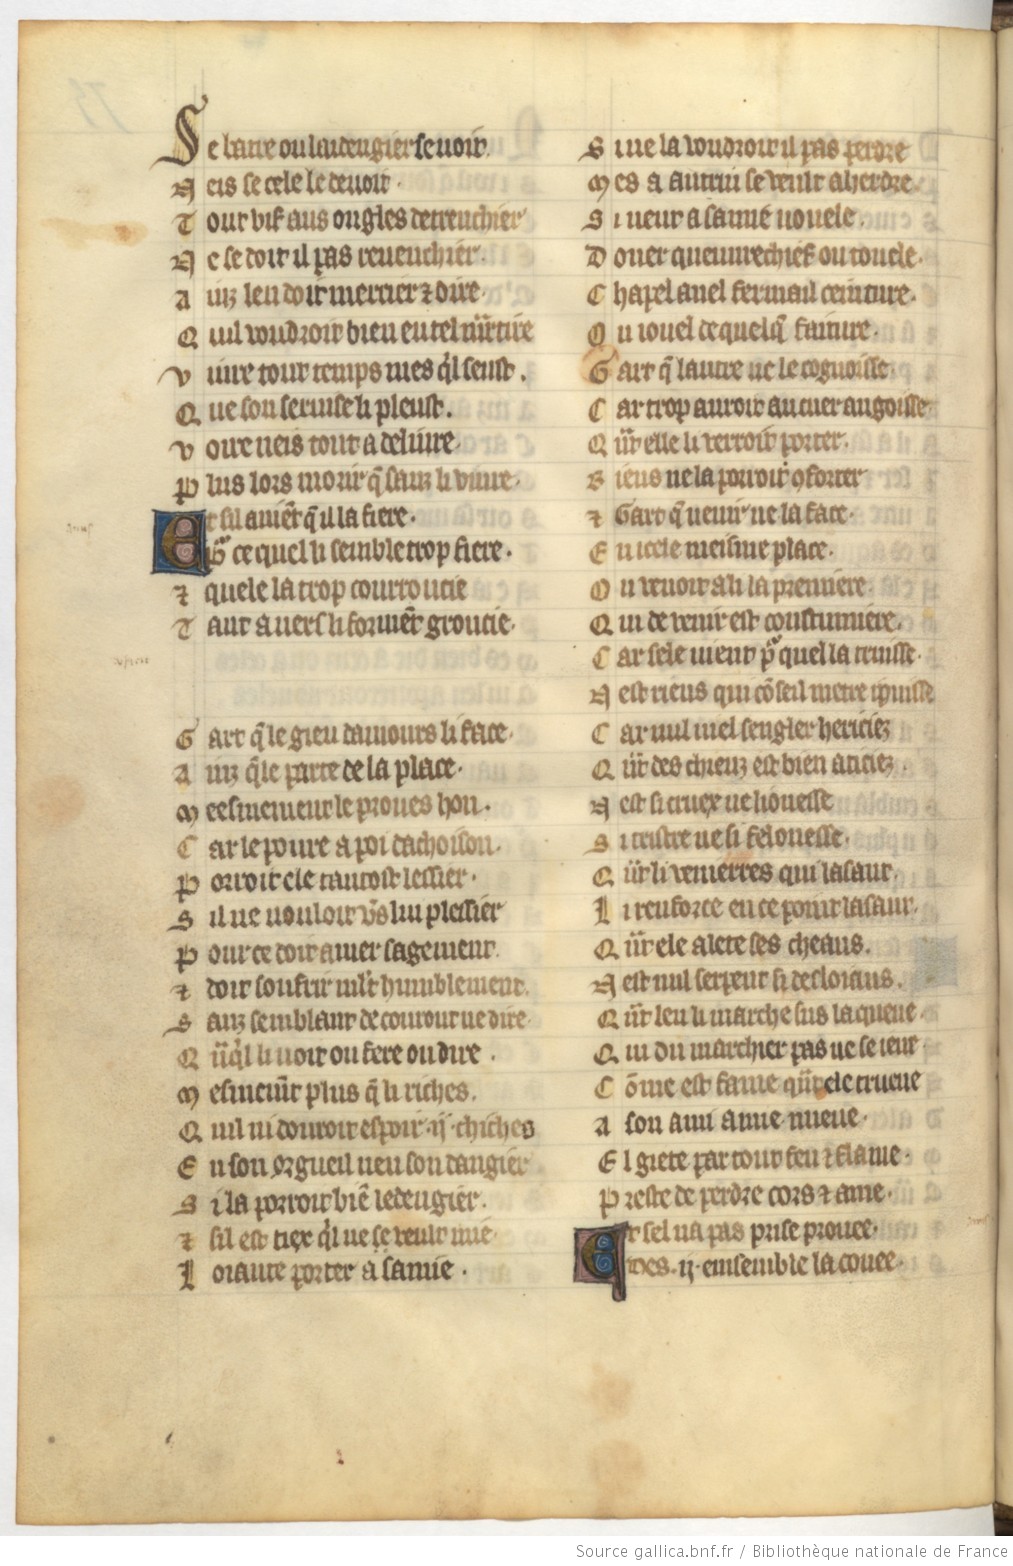 Se batre ou laidengier se voit
Neis se cele le devoit
Tout vif aus ongles detrenchier
Ne se doit il pas revenchier
Ainz len doit mercier ⁊ dire
Quil voudroit bien en tel mr̃tire
Vivre tout temps mes ql̃ seust.
Que son servise li pleust.
Voire neis tout a delivre.
Plus lors morir q̃ sanz li vivre.
Et sil avient q̃ il la fiere.
Pr̃ ce quel li semble trop fiere.
⁊ quele la trop courroucie
Tant a vers li formẽt groucie.
Gart q̃ le gieu damours li face.
Ainz q̃ le parte de la place.
Meesmement le povres hon.
Car le povre a poi dachoison.
Porroit ele tantost lessier.
Sil ne vouloit vs̃ lui plessier
Pour ce doit amer sagement.
⁊ doit soufrir mlt̃ humblement.
Sanz semblant de courout ne dire.
Qñql̃ li voit ou fere ou dire.
Mesmemẽt plus q̃ li riches.
Quil ni donroit espoir .ij. chiches
En son orgueil nen son dangier
Si la porroit biẽ ledengier.
⁊ sil est tiex ql̃ ne se veult mie
Loiaute porter a samie.
Si ne la voudroit il pas perdre
Mes a autrui se veult aherdre.
Si veut a samie novele.
Doner queuvrechief ou touele.
Chapel anel fermail ceinture.
Ou iouel de quelq̃ faiture.
Gart q̃ lautre ne le cognoisse.
Car trop auroit au cuer angoisse
Qñt elle li verroit porter.
Riens ne la porroit ꝯforter
⁊ Gart q̃ venir ne la face.
En icele meisme place.
Ou venoit a li la premiere.
Qui de venir est coustumiere.
Car sele vient pr̃ quel la truisse.
Nest riens qui cõseil metre i puisse
Car nul viel sengler hericiez
Qñt des chienz est bien aticiez.
Nest si cruex ne lionesse
Si tristre ne si felonesse.
Qñt li venierres qui lasaut.
Li renforce en ce point lasaut.
Qñt ele alete ses cheaus.
Nest nul serpent si desloiaus.
Qñt len li marche sus la queue
Qui du marchier pas ne se ieue
Cõme est fame qñt ele trueve
A son ami amie nueve.
El giete par tout feu ⁊ flame.
Preste de perdre cors ⁊ ame.
Et sel na pas prise prouee.
Des .ij. ensemble la couee.
Source gallica.bnf.fr / Bibliothèque nationale de France